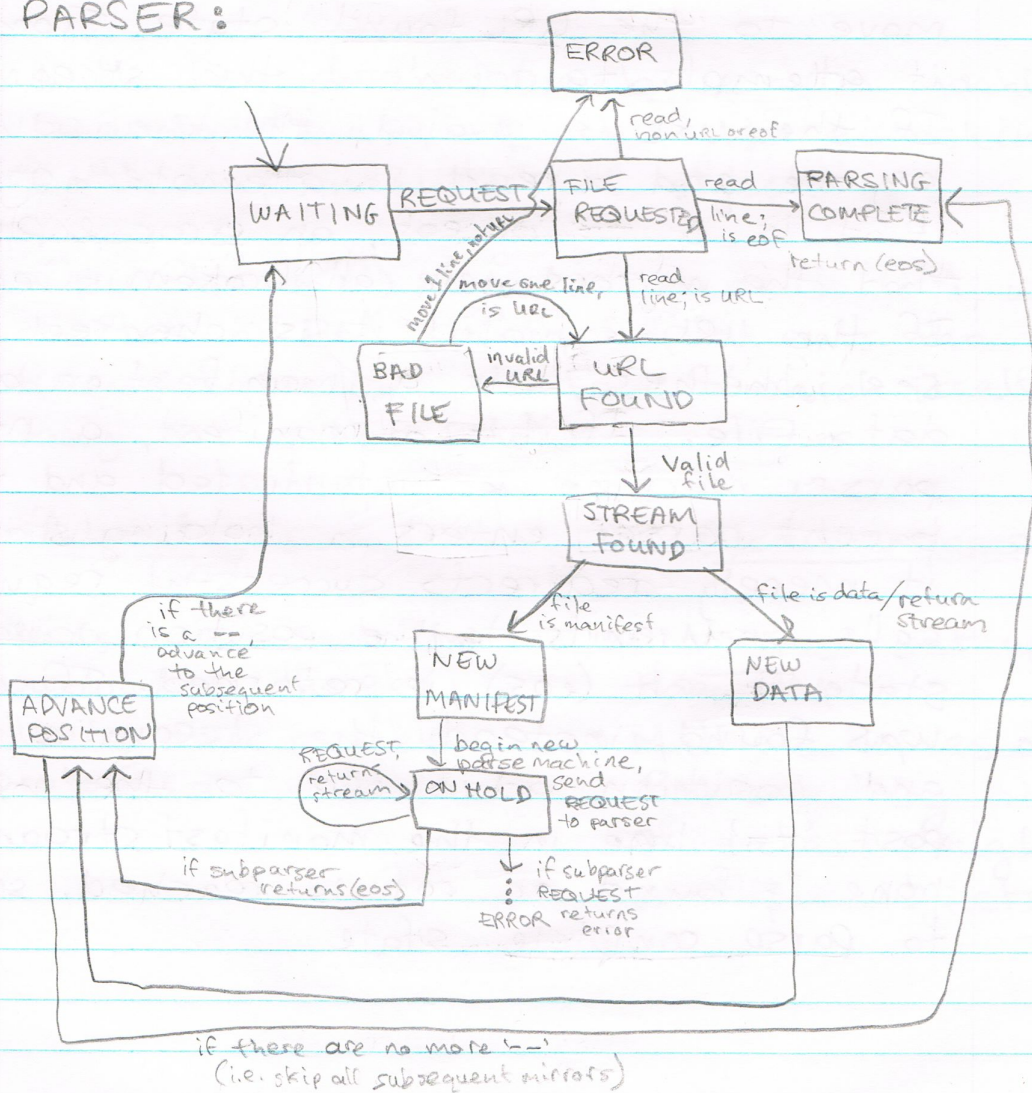 PARSER:
ERROR
read,
non URL or eof
WAITING
REQUEST
FILE
REQUESTED
read
line;
is eof
PARSING
COMPLETE
return (eos)
move 1 line, not URL
move one line,
is URL
read
line; is URL
BAD
FILE
invalid
URL
URL
FOUND
Valid
file
STREAM
FOUND
file
is manifest
file is data/return
stream
if there
is a --,
advance
to the
subsequent
position
NEW
MANIFEST
NEW
DATA
ADVANCE
POSITION
REQUEST,
return
stream
begin new
parse machine,
send
REQUEST
to parser
ON HOLD
if subparser
returns (eos)
if subparser
REQUEST
returns
error
ERROR
if there are no more '--'
(i.e. skip all subsequent mirrors)